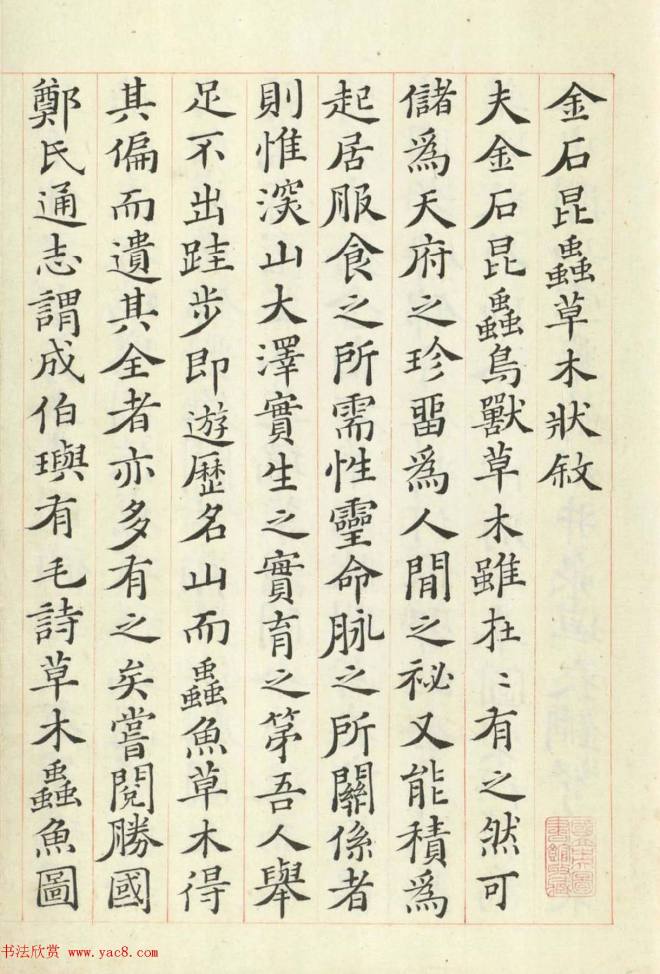 金石昆蟲草木狀敘
夫金石昆蟲鳥獸草木雖扗〻有之然可
儲爲天府之珍畱爲人閒之祕又能積爲
起居服食之所需性靈命脉之所關係者
則惟深山大澤實生之實育之第吾人舉
足不出跬步即遊歷名山而蟲魚草木得
其偏而遺其全者亦多有之矣嘗閱勝國
鄭氏通志謂成伯璵有毛詩草木蟲魚圖
书法欣赏 www.yac8.com